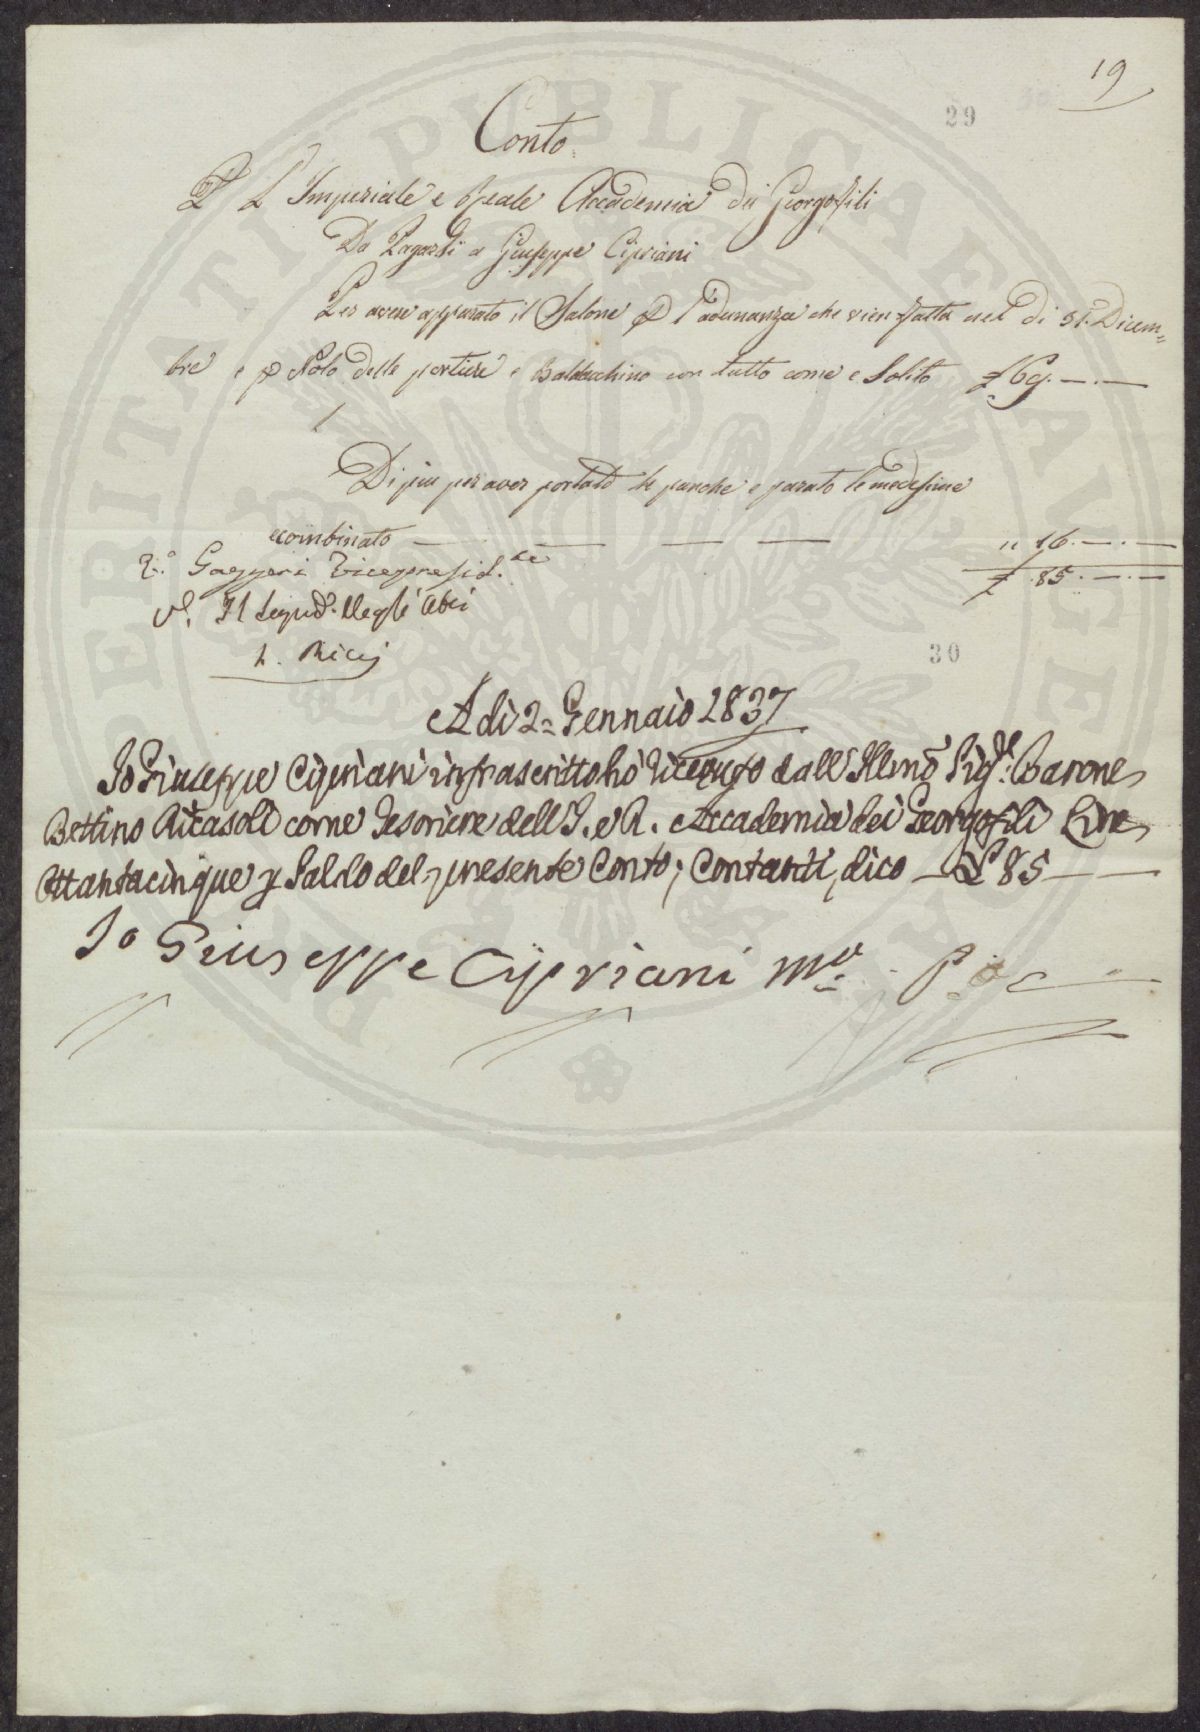 19
29
Conto
P L'Imperiale e Reale Accademia dei Georgofili
Da Pagarsi a Giuseppe Cipriani
Per avere apparato il Salone P l'adunanza che vien fatta nel di 31. Dicem=
bre e p Nolo delle portiere e Baldacchino con tutto come e Solito £ 69.—.—
Di piu per aver portato le panche e parato le medesime
ecombinato — — — — „ 16.—.—
£ 85.—.—
V.º Gazzeri Vicepresid.te
V.º Il Segred.º Degli Atti
L. Ricci
30
A di 2= Gennaio 1837
Io Giuseppe Cipriani infrascritto hò ricevuto dall'Illmo Sig.re Barone
Bettino Ricasoli come Tesoriere dell'I. e R. Accademia dei Georgofili Lire
Ottantacinque p Saldo del presente Conto; Contanti, dico — £ 85 —
Io Giuseppe Cipriani Mº
PUBLICAE